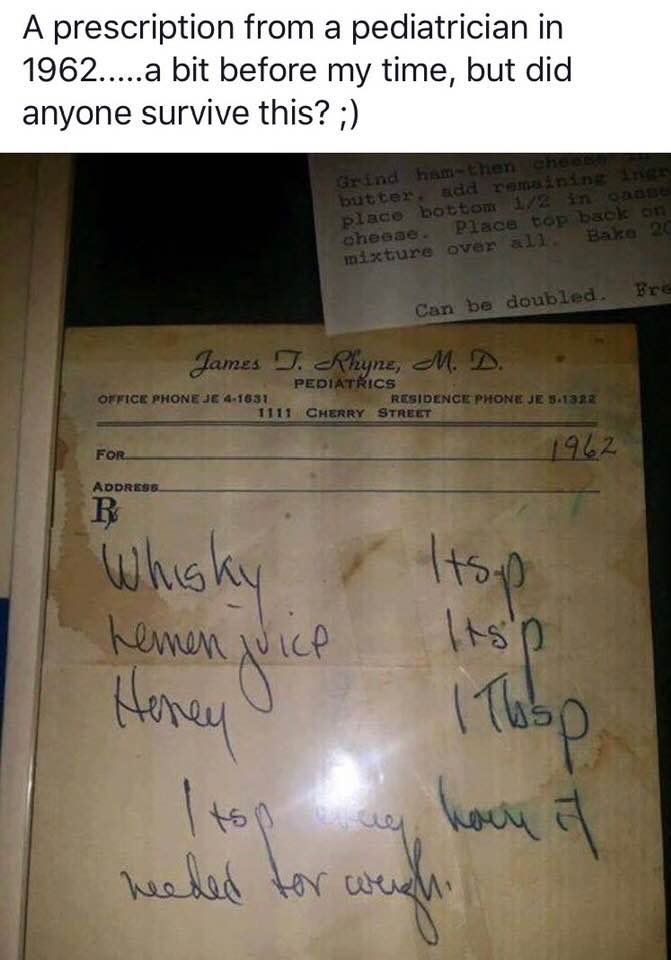 A prescription from a pediatrician in
1962.....a bit before my time, but did
anyone survive this? ;)
Grind ham-then cheese
butter, add remaining
place bottom 1/2 in
cheese. Place top back on
mixture over all. Bake 20
Can be doubled.
James T. Rhyne, M. D.
PEDIATRICS
OFFICE PHONE JE 4-1631 RESIDENCE PHONE JE 5-1322
1111 CHERRY STREET
FOR 1962
ADDRESS
Rx
Whisky 1 tsp
Lemon juice 1 tsp
Honey 1 Tbsp
1 tsp every hour if
needed for cough.